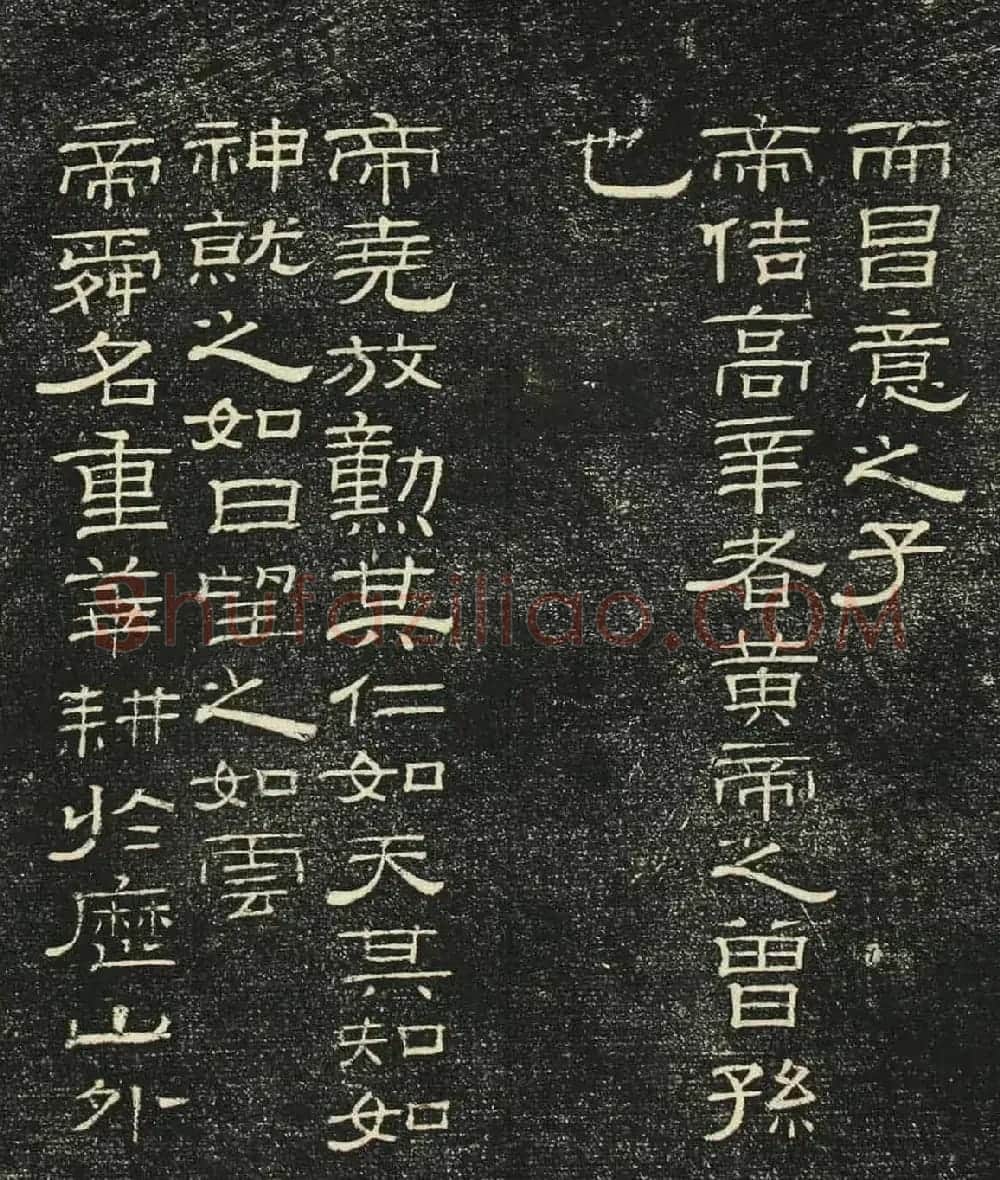 而昌意之子
帝佶高辛者黄帝之曾孫
也
帝堯放勳其仁如天其知如
神就之如日望之如雲
帝舜名重華耕於歷山外
Shufaziliao.COM